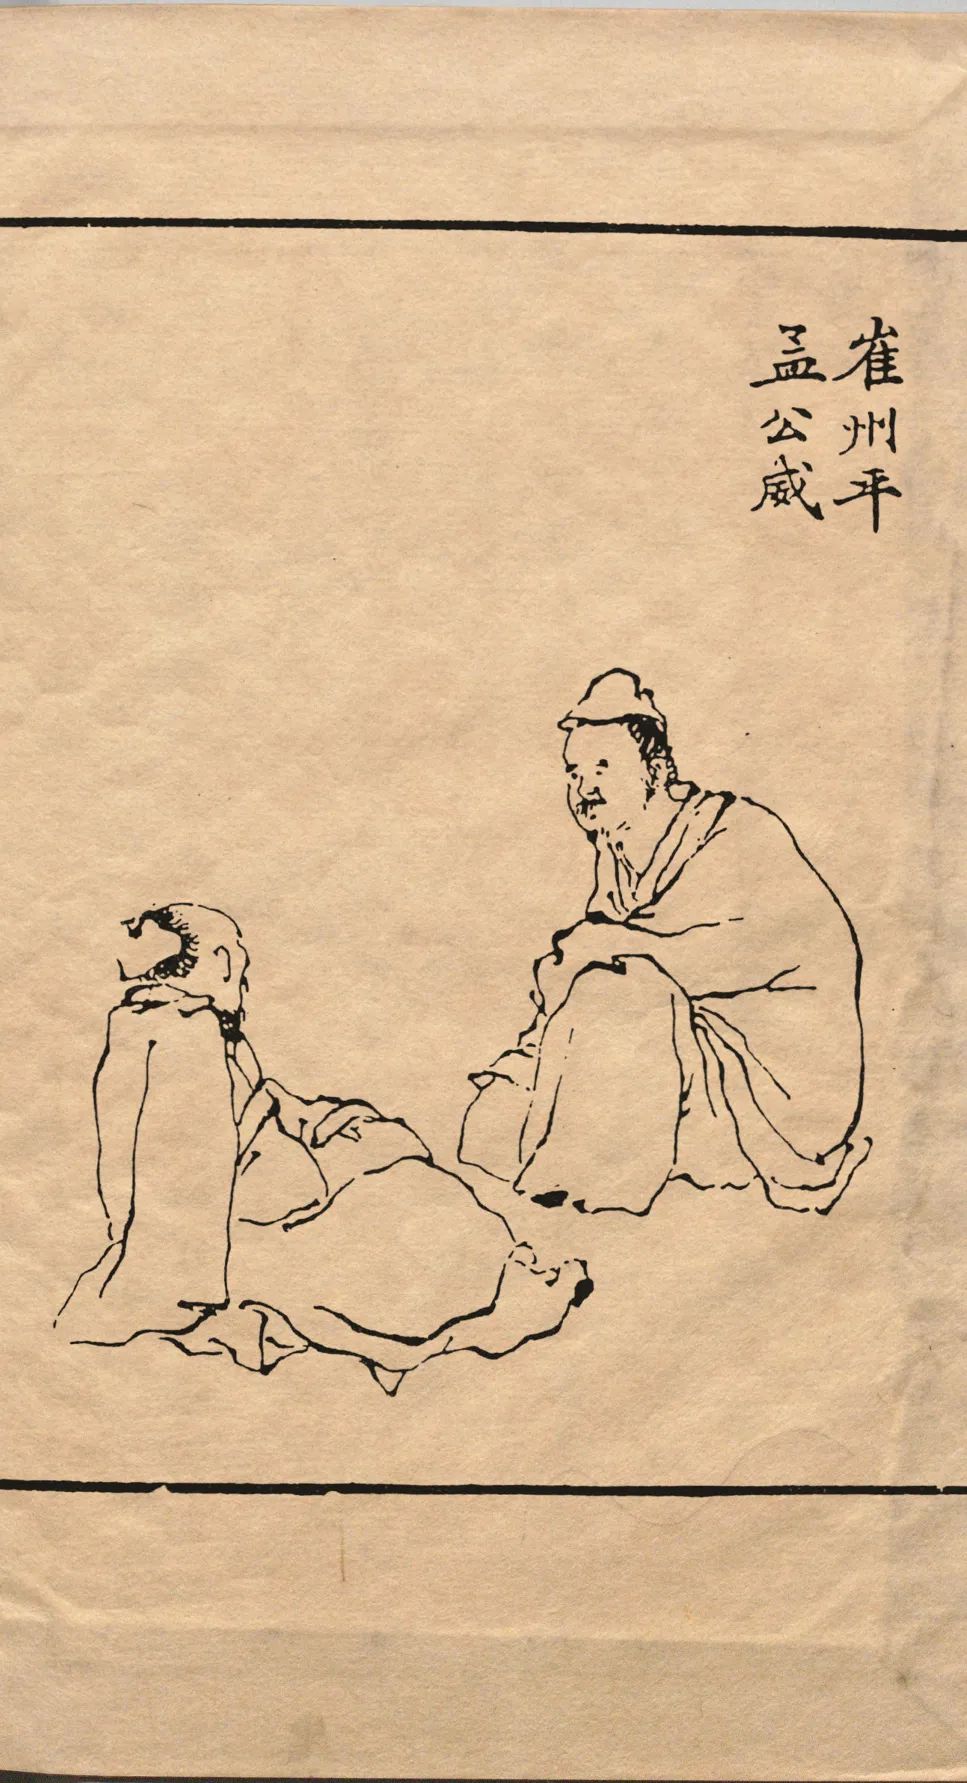 崔州平
孟公威